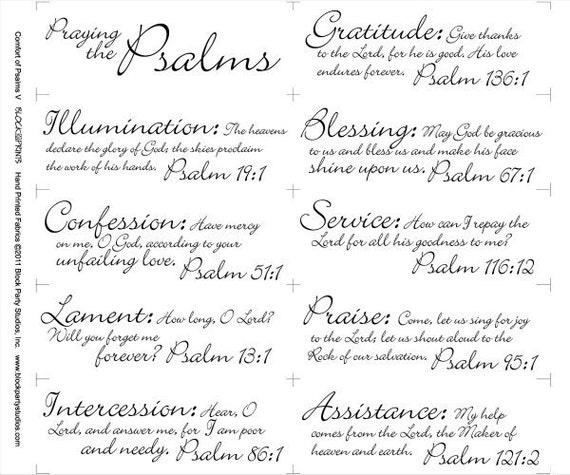 Praying
the Psalms
Gratitude: Give thanks
to the Lord, for he is good. His love
endures forever. Psalm 136:1
Illumination: The heavens
declare the glory of God; the skies proclaim
the work of his hands. Psalm 19:1
Blessing: May God be gracious
to us and bless us and make his face
shine upon us. Psalm 67:1
Confession: Have mercy
on me, O God, according to your
unfailing love. Psalm 51:1
Service: How can I repay the
Lord for all his goodness to me?
Psalm 116:12
Lament: How long, O Lord?
Will you forget me
forever? Psalm 13:1
Praise: Come, let us sing for joy
to the Lord; let us shout aloud to the
Rock of our salvation. Psalm 95:1
Intercession: Hear, O
Lord, and answer me, for I am poor
and needy. Psalm 86:1
Assistance: My help
comes from the Lord, the Maker of
heaven and earth. Psalm 121:2
Comfort of Psalms V BLOCK PRINTS Hand Printed Fabrics ©2011 Block Party Studios, Inc. www.blockpartystudios.com